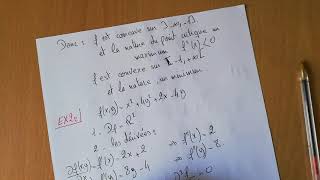 Donc : f est concave sur ]-∞, -1[
et la nature du point critique un
maximum f''(x) < 0
f est convexe sur ]-1, +∞[
et la nature un minimum
EX2: f(x,y) = x² + 4y² + 2x - 4y
1. Df = R²
2 - les dérivées:
f'(x) = 2x + 2 ⇒ f''(x) = 2
f'(y) = 8y - 4 ⇒ f''(y) = 8